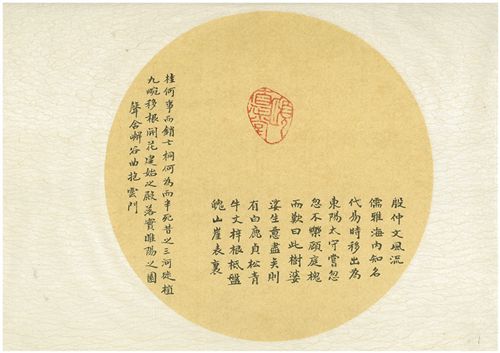 殷仲文風流
儒雅海内知名
代為時移出為
東陽太守嘗忽
忽不樂顧庭槐
而歎曰此樹婆
娑生意盡矣則
有白鹿貞松青
牛文梓根柢盤
魄山崖表裏
桂何事而銷亡桐何為而半死昔之三河徙植
九畹移根開花建始之殿落實睢陽之園
聲含嶰谷曲抱雲門